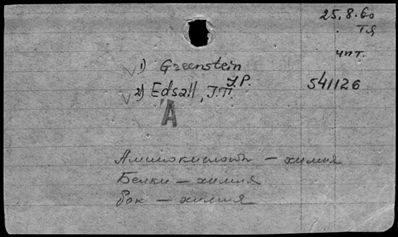 25.8.60
ТЯ
чит.
1) Greenstein J.P.
2) Edsall, J.T.
541126
A
Аминокислоты — химия
Белки — химия
Рак — химия